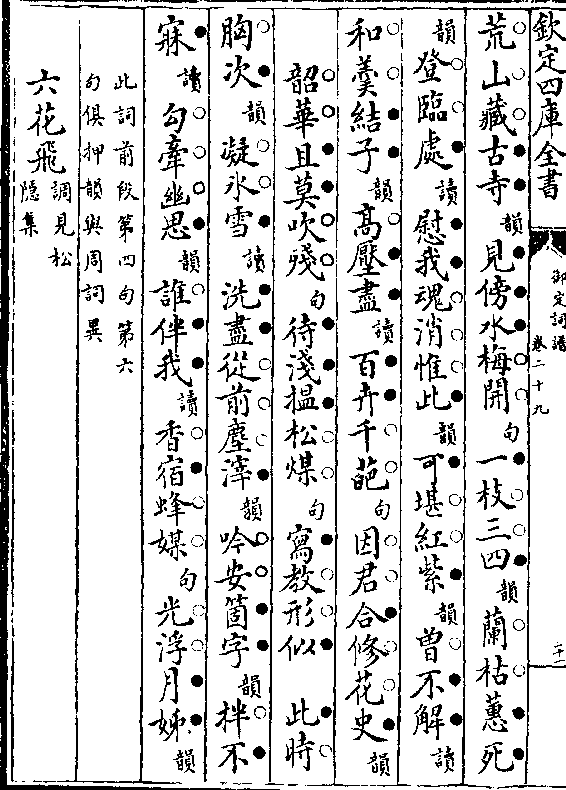 欽定四庫全書
御定詞譜
卷二十九
二十一
荒山藏古寺韻見傍水梅開句一枝三四韻蘭枯蕙死
韻登臨處讀慰我魂消惟此韻可堪紅紫韻曾不解讀
和羮結子韻高壓盡讀百卉千葩句因君合修花史韻
韶華且莫吹殘句待淺揾松煤句寫教形似 此時
胸次韻凝氷雪讀洗盡從前塵滓韻吟安箇字韻拌不
寐讀勾牽幽思韻誰伴我讀香宿蜂媒句光浮月姊韻
此詞前段第四句第六
句俱押韻與周詞異
六花飛調見松
隱集